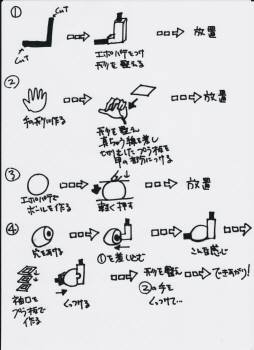 ①
CUT
CUT
エポパテをつけ
形を整える
放置
②
手の形に作る
形を整え
真ちゅう線を差し
切り出したプラ板を
甲の部分につける
放置
③
エポパテで
ボールを作る
軽く押す
放置
④
穴をあける
①を差し込む
こんな感じ
袖口を
プラ板で
作る
くっつける
形を整え
②の手を
くっつけて…
できあがり!